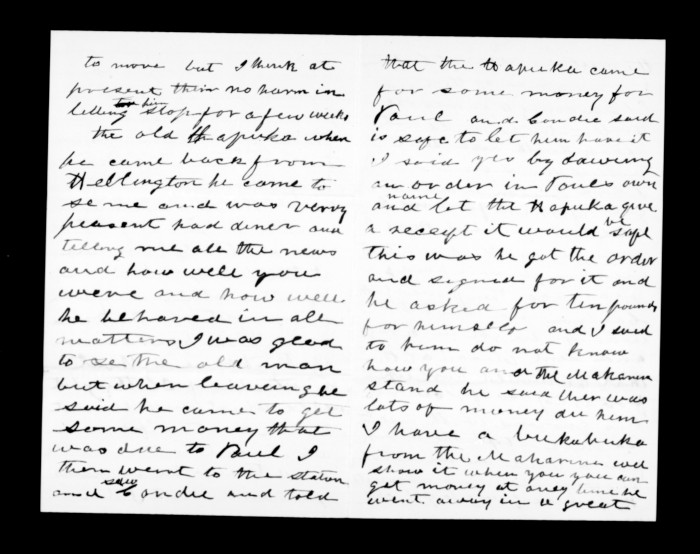 to move but I think at
present ther no harm in
letting him stop for a few weeks
the old Hapuka when
he came back from
Wellington he came to
se me and was very
peasent had diner and
telling me all the news
and how well you
were and how well
he behaved in all
matters I was glad
to se the old man
but when leaveing he
said he came to get
some money that
was due to Paul I
then went to the station
and saw Condie and told
that the Hapuka came
for some money for
Paul and Condie said
is safe to let him have it
I said yes by drawing
an order in Pauls own
name
and let the Hapuka give
a receipt it would be safe
this was he got the order
and signed for it and
he asked for ten pounds
for himself and I said
to him do not know
how you and the Makarini
stand he said ther was
lots of money du him
I have a bukabuka
from the Makarini will
show it when you you can
get money at aney time he
went away in a great